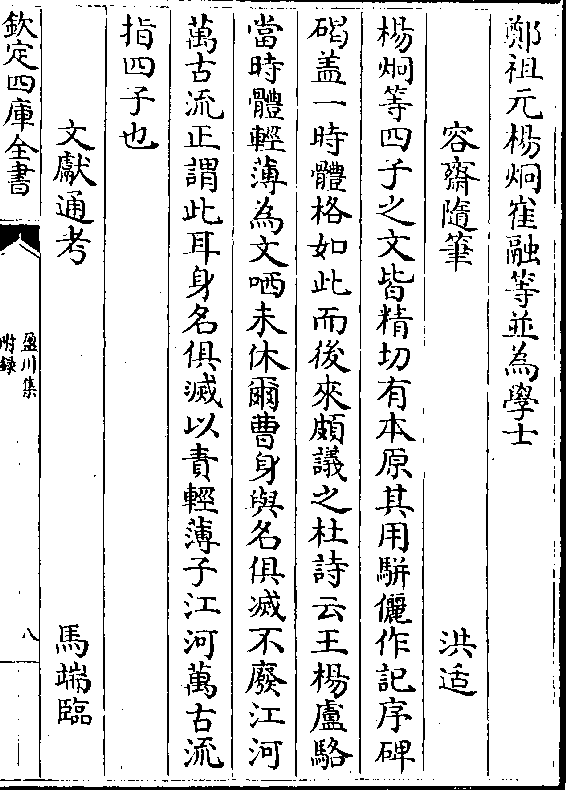 鄭祖元楊炯崔融等並為學士
容齋隨筆 洪适
楊炯等四子之文皆精切有本原其用駢儷作記序碑
碣盖一時體格如此而後來頗議之杜詩云王楊盧駱
當時體輕薄為文哂未休爾曹身與名俱滅不廢江河
萬古流正謂此耳身名俱滅以責輕薄子江河萬古流
指四子也
文獻通考 馬端臨
欽定四庫全書
盈川集
附録
八